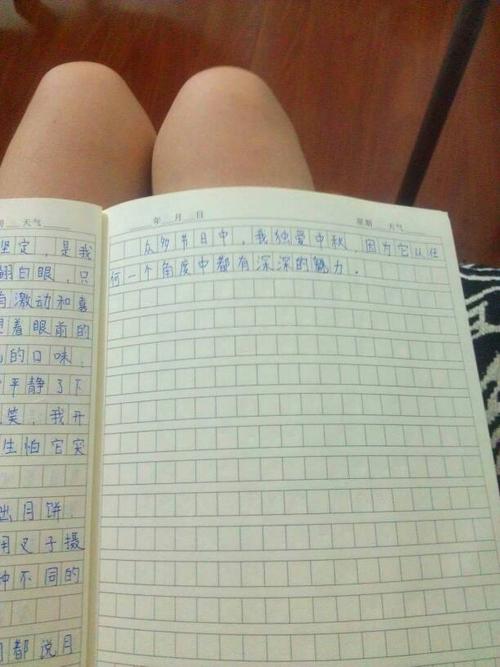 期 天气
坚定，是我
翻白眼，只
有激动和喜
着眼前的
的口味，
平静了下
笑，我开
生怕它突
出月饼
用叉子摄
种不同的
都说月
年 月 日 星期 天气
众多节日中，我独爱中秋，因为它从任
何一个角度中都有深深的魅力．